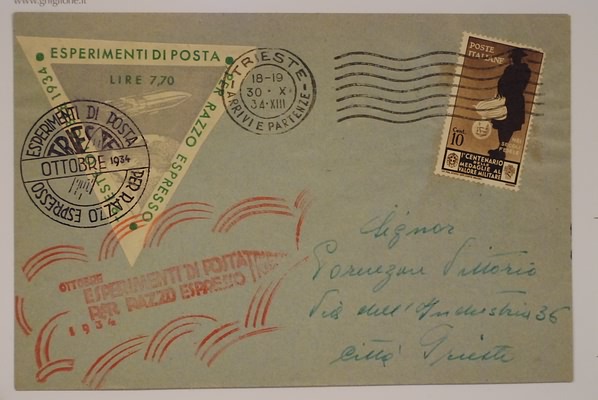 www.ghiglione.it
ESPERIMENTI DI POSTA
PER RAZZO ESPRESSO
1934
LIRE 7,70
TRIESTE
ESPERIMENTI DI POSTA
TRIESTE
OTTOBRE 1934
PER RAZZO ESPRESSO
TRIESTE
18-19
30·X·
34·XIII
ARRIVI E PARTENZE
POSTE
ITALIANE
Cent.
10
Iº CENTENARIO
DELLE
MEDAGLIE AL
VALORE MILITARE
OTTOBRE
ESPERIMENTI DI POSTA
PER RAZZO ESPRESSO
1934
Signor
Vittorio
Via dell'Industria 36
città Trieste